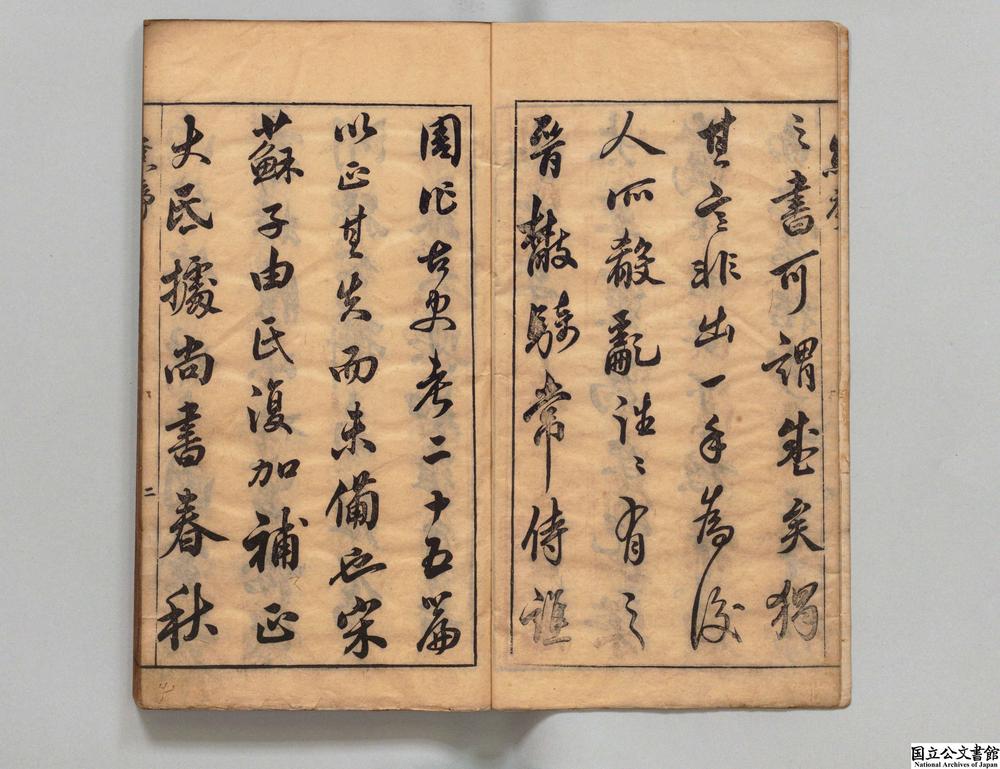 之書可謂盛矣獨
其言非出一手為後
人所殽亂往〻有之
晉散騎常侍譙
周作古史考二十五篇
以正其失而未備也宋
蘇子由氏復加補正
大氐據尚書春秋
二
国立公文書館
National Archives of Japan